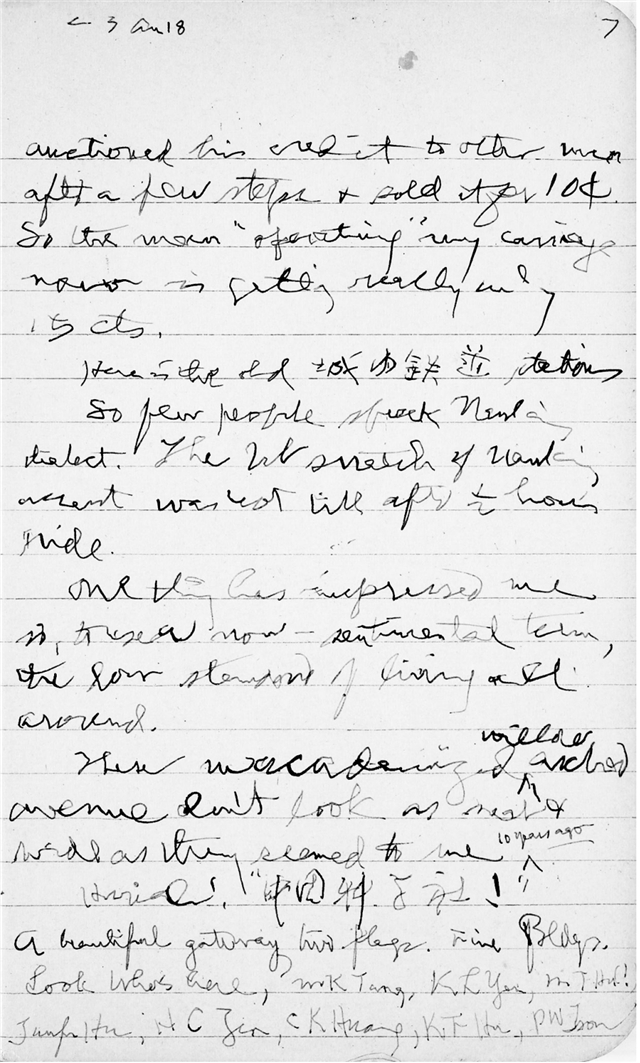 3 Au 18 7
auctioned his credit to other men
after a few steps & sold it for 10¢.
So the man "operating" my carriage
now is getting really only
15 cts.
Here is the old 城内鉄道 station
So few people speak Nanking
dialect. The 1st snatch of Nanking
accent was not till after ½ hours
ride.
One thing has impressed me
is, to use a now-sentimental term,
the low standard of living all
around.
These macadamized willow arched
avenue don't look as neat &
wide as they seemed to me 10 years ago
Hurrah! "中国科学社!"
A beautiful gateway, two flags. Fine Bldgs.
Look who's here, W K Tang, K L Yen, M T Hu!
Hu, H C Zen, C K Huang, K F Hu, P W Tson